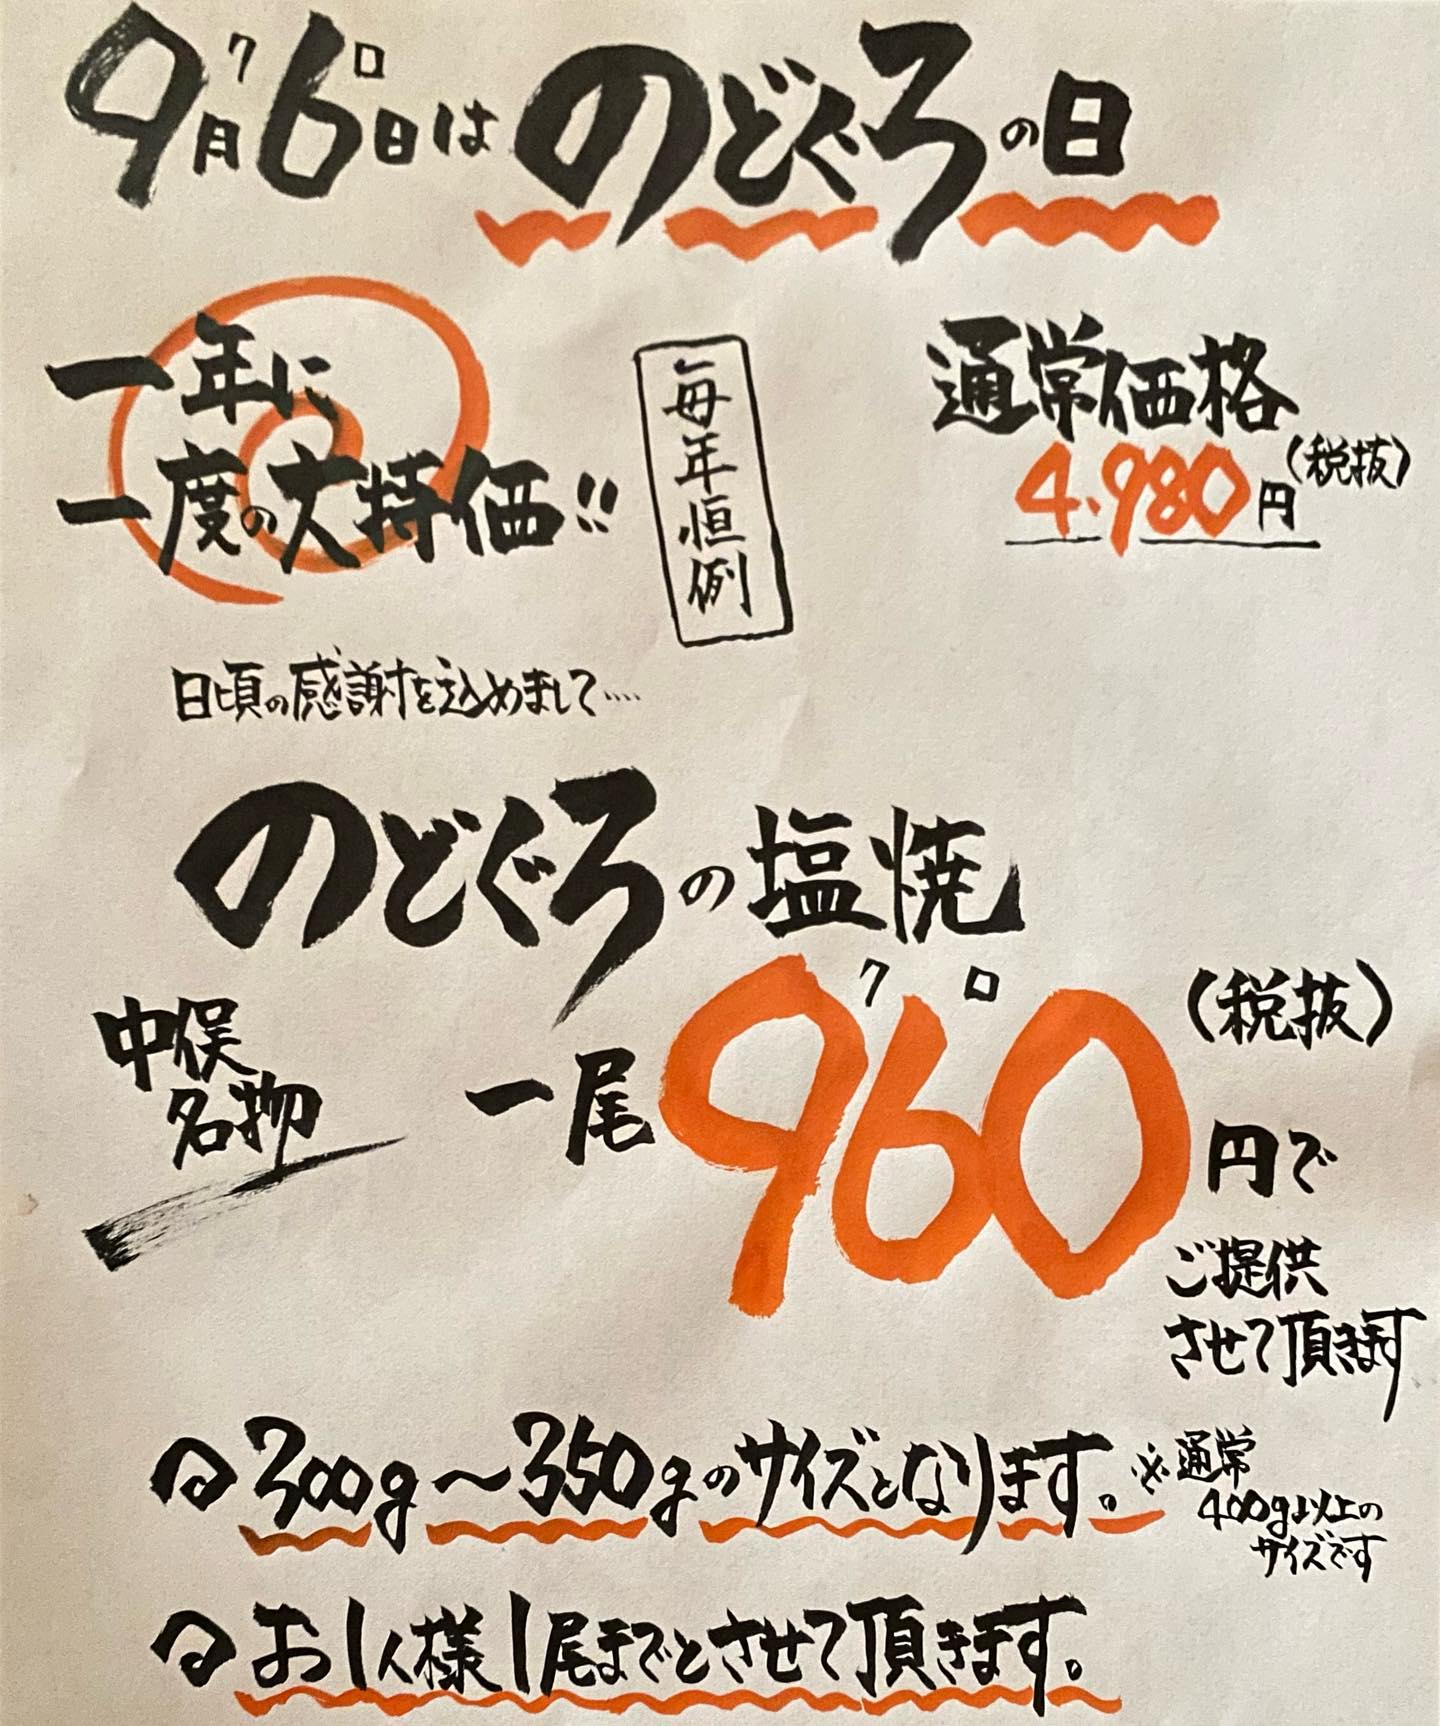 9月6日はのどぐろの日
クロ
一年に
一度の大特価!!
毎年恒例
通常価格
4.980円(税抜)
日頃の感謝を込めまして....
のどぐろの塩焼
中俣
名物
クロ
一尾960円で
(税抜)
ご提供
させて頂きます
300g〜350gのサイズとなります。
※通常
400g以上の
サイズです
お1人様1尾までとさせて頂きます。